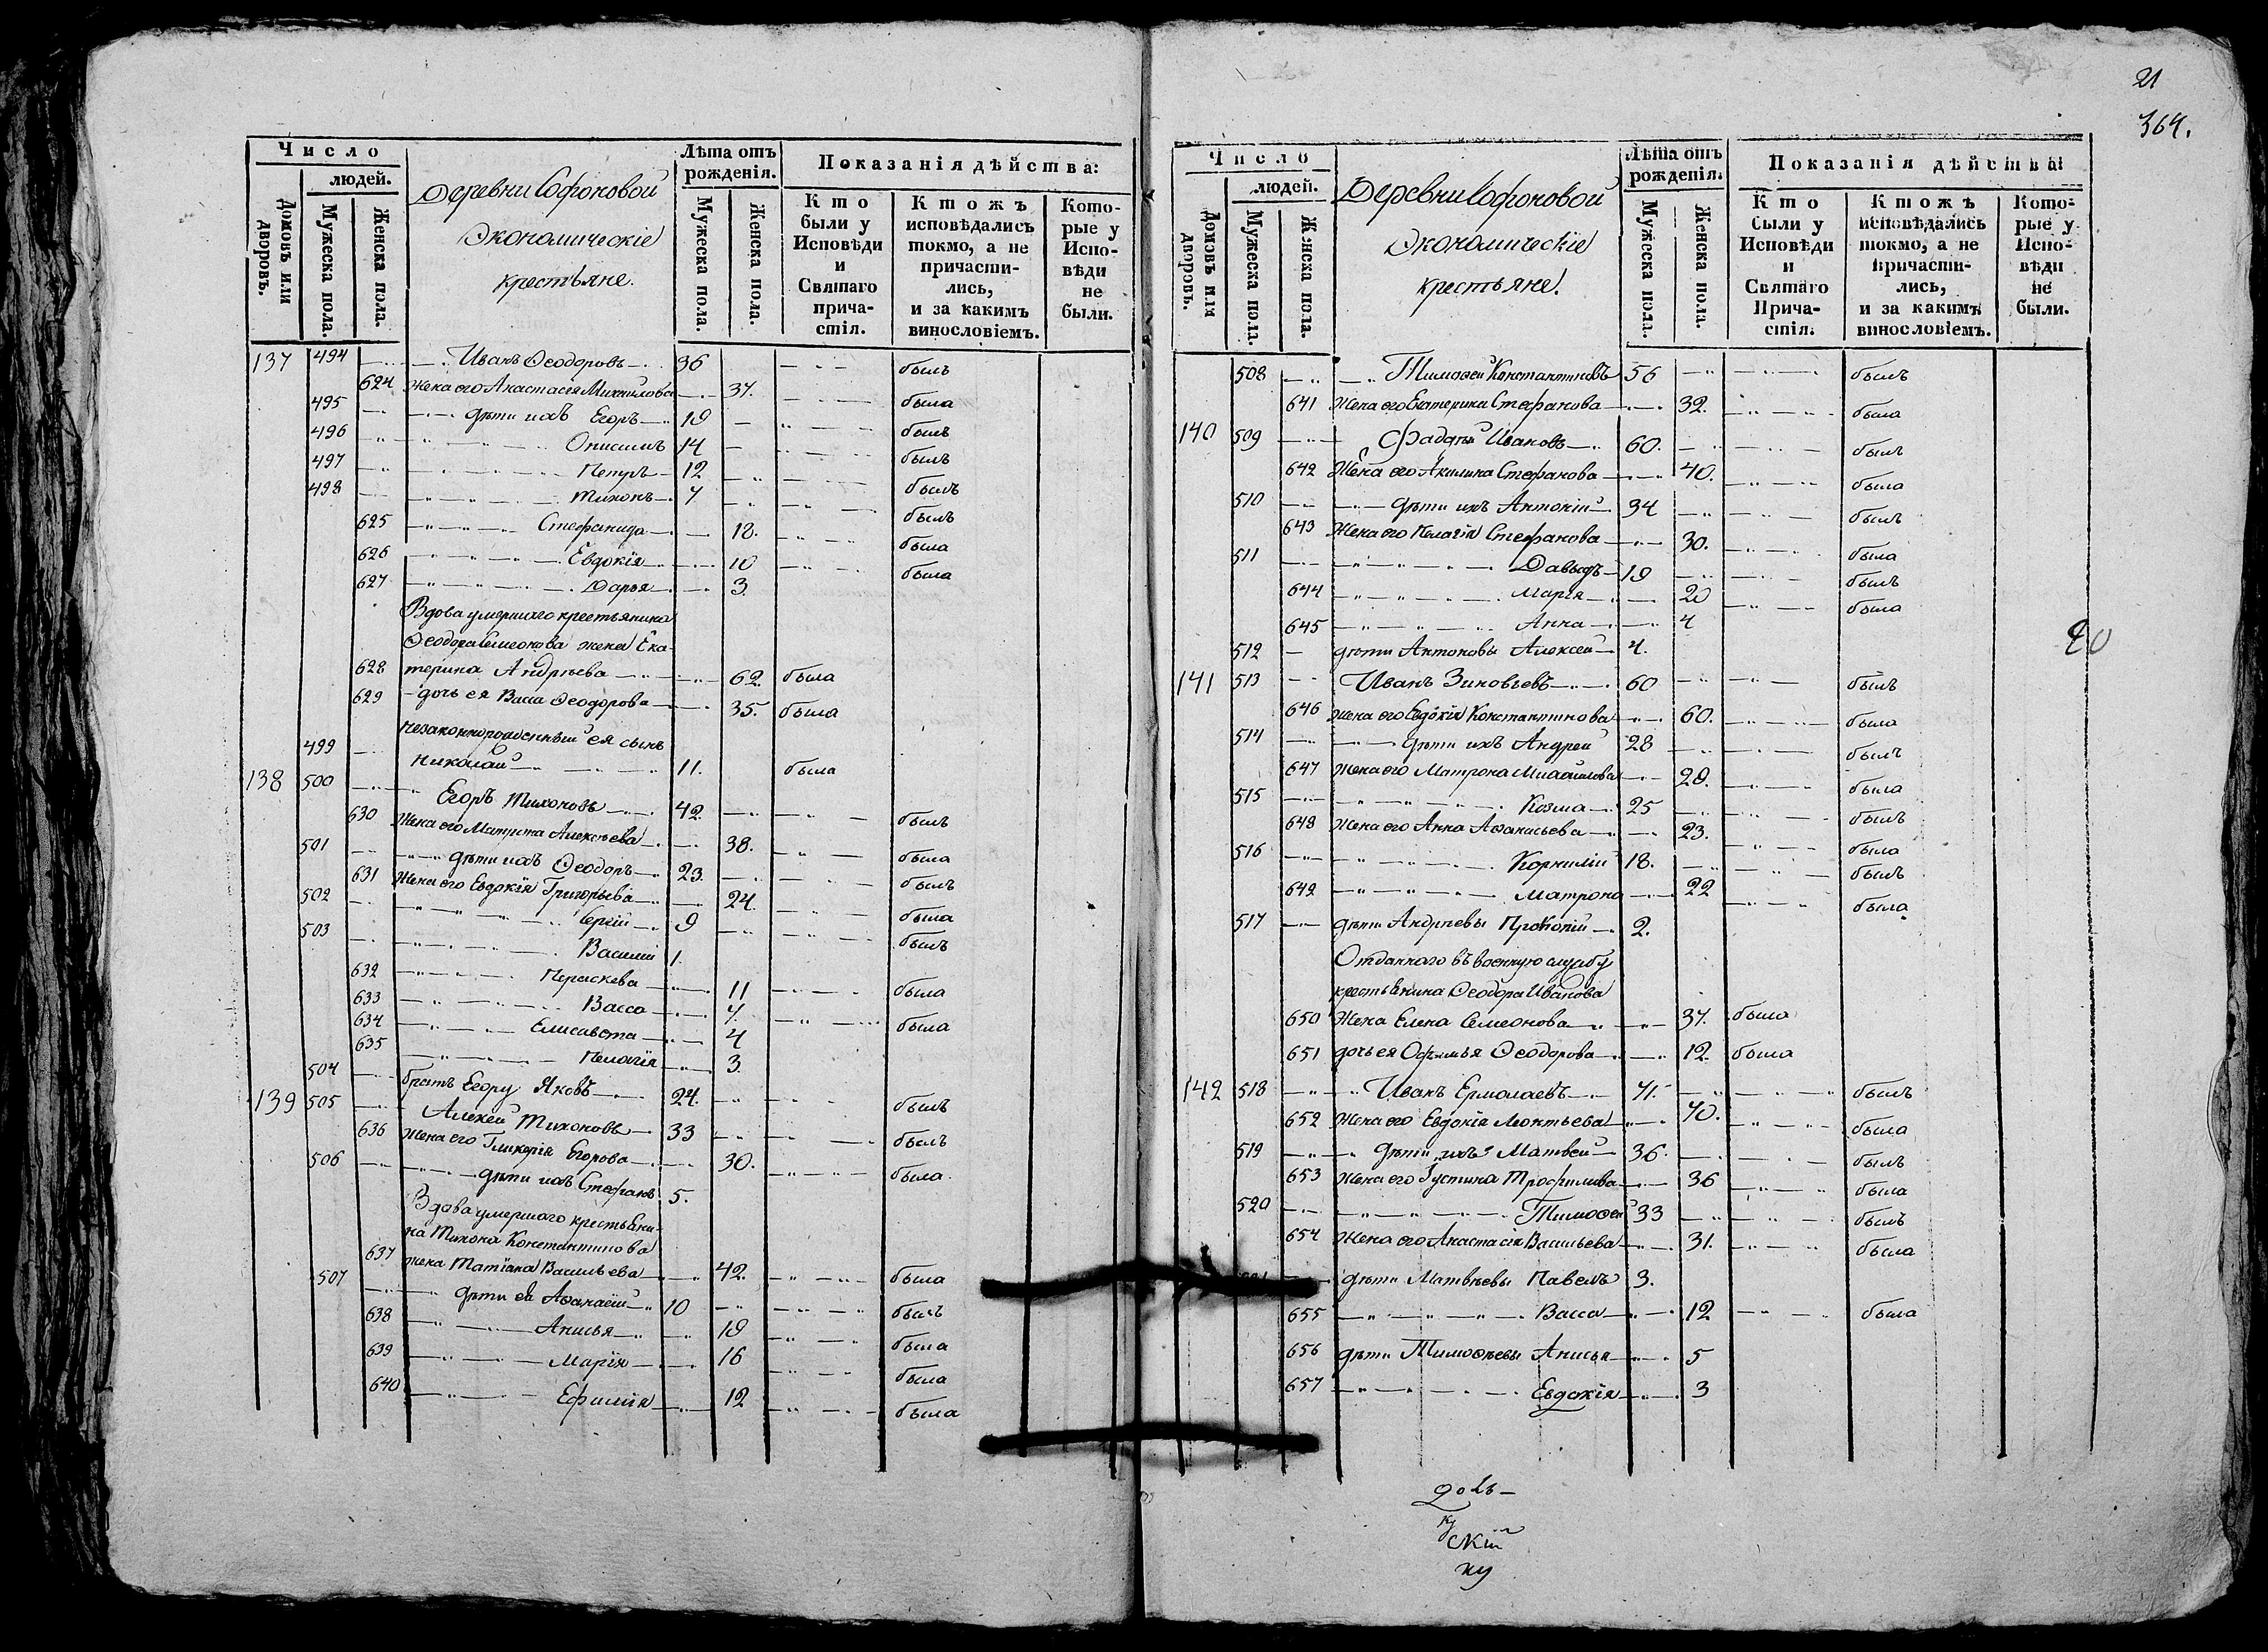 Число
людей.
Домовъ или дворовъ.
Мужеска пола.
Женска пола.
Деревни Софоновой
Экономическіе
крестьяне.
Лѣта отъ рожденія.
Мужеска пола.
Женска пола.
Показанія дѣйства:
Кто были у Исповѣди и Святаго причастія.
Ктожъ исповѣдались токмо, а не причастились, и за какимъ винословіемъ.
Которые у Исповѣди не были.
137 494 Иванъ Ѳеодоровъ 36 былъ
624 жена его Анастасія Михайлова 37. была
495 дѣти ихъ Егоръ 19 былъ
496 Онисимъ 14 былъ
497 Петръ 12 былъ
498 Тихонъ 7 былъ
625 Стефанида 18. была
626 Евдокія 10 была
627 Дарья 3.
Вдова умершаго крестьянина
Ѳеодора Семеонова жена Ека-
628 терина Андрѣева 62. была
629 дочь ея Васса Ѳеодорова 35. была
незаконнорожденный ея сынъ
499 Николай 11. была
138 500 Егоръ Тихоновъ 42. былъ
630 Жена его Матрена Алексѣева 38. была
501 дѣти ихъ Ѳеодоръ 23. былъ
631 Жена его Евдокія Григорьева 24. была
502 Сергій 9 былъ
503 Василій 1.
632 Пераскева 11 была
633 Васса 7. была
634 Елисавета 4
635 Пелагія 3.
504 братъ Егору Яковъ 24. былъ
139 505 Алексей Тихоновъ 33 былъ
636 жена его Гликерія Егорова 30. была.
506 дѣти ихъ Стефанъ 5.
Вдова умершаго крестьяни-
на Тихона Константинова
637 жена Татіана Васильева 42. была
507 дѣти ея Аѳанасій 10 былъ
638 Анисья 19 была
639 Марія 16 была
640 Ефимія 12 была
21
364.
Число
людей.
Домовъ или дворовъ.
Мужеска пола.
Женска пола.
Деревни Софоновой
Экономическіе
крестьяне.
Лѣта отъ рожденія.
Мужеска пола.
Женска пола.
Показанія дѣйства:
Кто были у Исповѣди и Святаго Причастія.
Ктожъ исповѣдались токмо, а не причастились, и за какимъ винословіемъ.
Которые у Исповѣди не были.
508 Тимоѳей Константиновъ 56 былъ
641 Жена его Екатерина Стефанова 32. была
140 509 Фадѣй Ивановъ 60. былъ
642 Жена его Акилина Стефанова 40. была
510 дѣти ихъ Антоній 34 былъ
643 Жена его Пелагія Стефанова 30. была
511 Давыдъ 19 былъ
644 Марія 20 была
645 Анна 4
512 дѣти Антоновы Алексей 4.
141 513 Иванъ Зиновьевъ 60 былъ
646 жена его Евдокія Константинова 60. была
514 дѣти ихъ Андрей 28 былъ
647 Жена его Матрона Михайлова 29. была
515 Козма 25 былъ
648 Жена его Анна Аѳанасьева 23. была
516 Корнилій 18. былъ
649 Матрона 22 была
517 дѣти Андрѣевы Прокопій 2.
Отданнаго въ военную службу
крестьянина Ѳеодора Иванова
650 Жена Елена Семеонова 37. была
651 дочь ея Офимья Ѳеодорова 12. была
142 518 Иванъ Ермолаевъ 71. былъ
652 Жена его Евдокія Леонтьева 70. была
519 дѣти ихъ Матвей 36. былъ
653 Жена его Іустина Трофимова 36 была
520 Тимоѳей 33 былъ
654 Жена его Анастасія Васильева 31. была
дѣти Матвѣевы Павелъ 3.
655 Васса 12 была
656 дѣти Тимоѳѣевы Анисья 5
657 Евдокія 3
ну